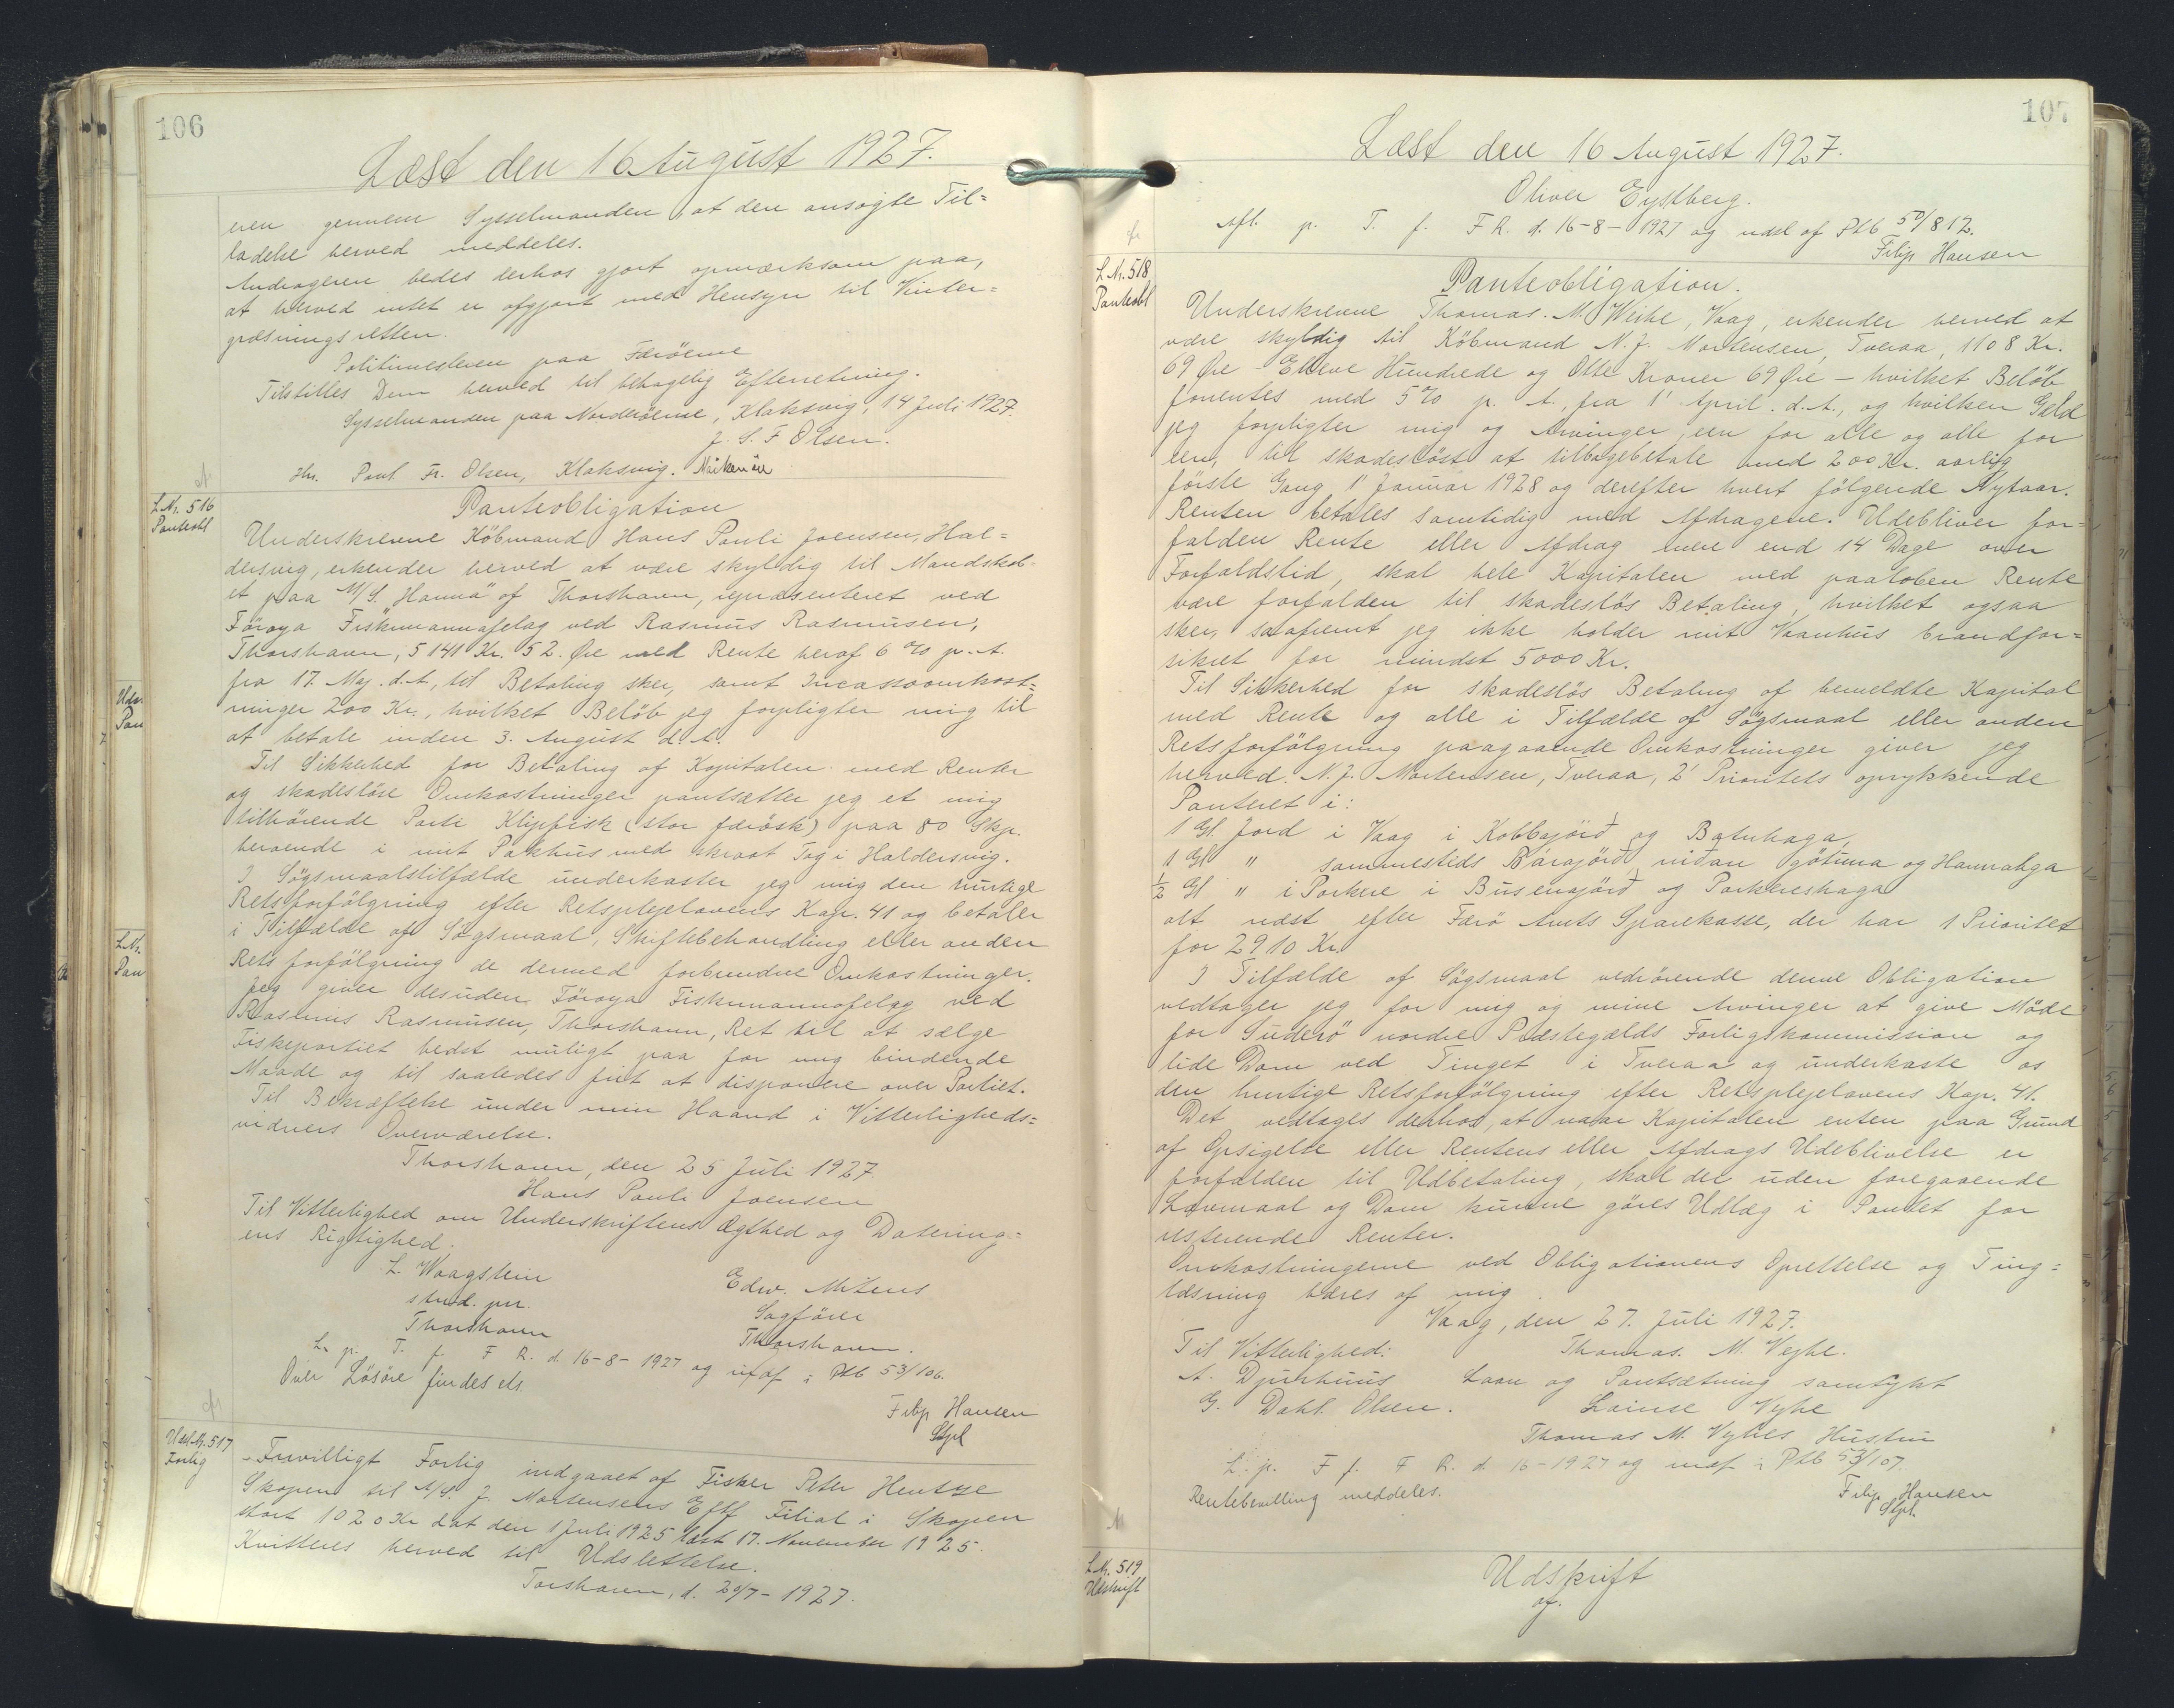 106
Læst den 16 August 1927.
eren gennem Sysselmanden, at den ansøgte Til=
ladelse herved meddeles.
Andrageren bedes derhos gjort opmærksom paa,
at herved intet er afgjort med Hensyn til Vinter=
græsningsretten.
Politimesteren paa Færöerne
Tilstilles Dem herved til behagelig Efterretning.
Sysselmanden paa Norderöerne, Klaksvig, 14 Juli 1927.
J. S. F Olsen.
Hr. Poul Fr. Olsen, Klaksvig.
L Nr. 516
Panteobl
Panteobligation
Underskrevne Köbmand Hans Pauli Joensen, Hal=
dersvig, erkender herved at være skyldig til Mandskab-
et paa M/S. "Hanna" af Thorshavn, repræsenteret ved
Föroya Fiskimannafelag ved Rasmus Rasmussen,
Thorshavn, 5141 Kr. 52. Øre med Rente heraf 6 % p. A.
fra 17. Maj. d. A., til Betaling sker, samt Incassoomkost=
ninger 200 Kr., hvilket Belöb jeg forpligter mig til
at betale inden 3. August d. A.
Til Sikkerhed for Betaling af Kapitalen med Renter
og skadeslöse Omkostninger pantsætter jeg et mig
tilhörende Parti Klipfisk (stor færösk) paa 80 Skp.
beroende i mit Pakhus med skraat Tag i Haldersvig.
I Sögsmaalstilfælde underkaster jeg mig den hurtige
Retsforfölgning efter Retsplejelovens Kap. 41 og betaler
i Tilfælde af Sögsmaal, Skiftebehandling eller anden
Retsforfölgning de dermed forbundne Omkostninger.
Jeg giver desuden Föroya Fiskimannafelag ved
Rasmus Rasmussen, Thorshavn, Ret til at sælge
Fiskepartiet bedst muligt paa for mig bindende
Maade og til saaledes frit at disponere over Partiet.
Til Bekræftelse under min Haand i Vitterligheds=
vidners Overværelse.
Thorshavn, den 25 Juli 1927
Hans Pauli Joensen
Til Vitterlighed om Underskriftens Ægthed og Datering=
ens Rigtighed.
L. Waagstein
stud. jur.
Thorshavn
Edw. Mitens
Sagförer
Thorshavn.
L. p. T. f. F R. d. 16-8-1927 og inf af i Ptb 53/106.
Over Lösöre findes ets.
Filip Hansen
Stpl
Udsl Nr. 517
Forlig
Frivilligt Forlig indgaaet af Fisker Peter Hentze
Skopen til A/S. J. Mortensens Eftf Filial i Skopen
stort 1020 Kr dat den 1 Juli 1925 læst 17. November 1925.
Kvitteres herved til Udslettelse.
Torshavn, d. 20/7-1927.
107
Læst den 16 August 1927.
Oliver Eystberg.
Afl. p. T. f. F R. d. 16-8-1927 og udsl af Ptb 50/812.
Filip Hansen
L Nr. 518
Panteobl
Panteobligation.
Underskrevne Thomas. M. Weihe, Vaag, erkender herved at
være skyldig til Köbmand N. J. Mortensen, Tveraa, 1108 Kr.
69 Øre - Elleve Hundrede og Otte Kroner 69 Øre - hvilket Belöb
forrentes med 5 % p. A., fra 1' April. d. A., og hvilken Gæld
jeg forpligter mig og Arvinger, een for alle og alle for
een, til skadeslöst at tilbagebetale med 200 Kr. aarlig,
förste Gang 1' Januar 1928 og derefter hvert fölgende Nytaar.
Renten betales samtidig med Afdragene. Udebliver for=
falden Rente eller Afdrag mere end 14 Dage over
Forfaldstid, skal hele Kapitalen med paaloben Rente
være forfalden til skadeslös Betaling, hvilket ogsaa
sker, saafremt jeg ikke holder mit Vaanhus brandfor=
sikret for mindst 5000 Kr.
Til Sikkerhed for skadeslös Betaling af bemeldte Kapital
med Rente og alle i Tilfælde af Sögsmaal eller anden
Retsforfölgning paagaaende Omkostninger giver jeg
herved. N. J. Mortensen, Tveraa, 2' Prioritets oprykkende
Panteret i:
1 Gl. Jord i Vaag i Kobbajörð og Botnhaga,
1 Gl " sammesteds Bárajörð niðan götuna og Hamrahga
1/2 Gl " i Porkere i Busenajörð og Porkereshaga
alt næst efter Færö Amts Sparekasse, der har 1 Prioritet
for 2910 Kr.
I Tilfælde af Sögsmaal vedrörende denne Obligation
vedtager jeg for mig og mine Arvinger at give Möde
for Suderö nordre Præstegælds Forligskommission og
lide Dom ved Tinget i Tveraa og underkaste os
den hurtige Retsforfölgning efter Retsplejelovens Kap. 41.
Det vedtages derhos, at naar Kapitalen enten paa Grund
af Opsigelse eller Rentens eller Afdrags Udeblivelse er
forfalden til Udbetaling, skal der uden foregaaende
Lovmaal og Dom kunne göres Udlæg i Pantet for
resterende Renter.
Omkostningerne ved Obligationens Oprettelse og Ting=
læsning bæres af mig.
Vaag, den 27. Juli 1927.
Til Vitterlighed: Thomas. M. Vejhe.
A. Djurhuus Laan og Pantsætning samtykt
G. Dahl Olsen. Lovise Vejhe
Thomas M. Vejhes Hustru
L. p. T f. F R. d. 16-1927 og indf i Ptb 53/107.
Rentebevilling meddeles.
Filip Hansen
Stpl.
L Nr. 519
Udskrift
Udskrift
af.